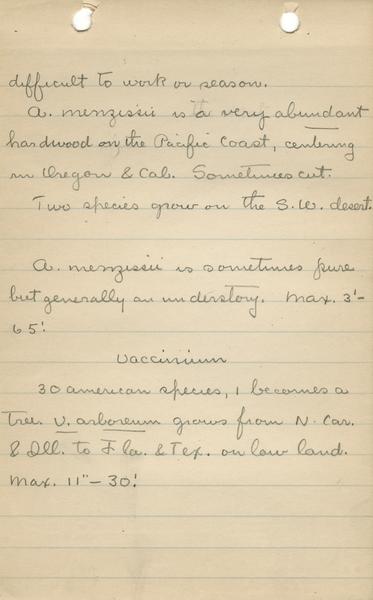 difficult to work or season.
A. menziesii is a very abundant
hardwood on the Pacific Coast, centering
in Oregon & Cal. Sometimes cut.
Two species grow on the S.W. desert.
A. menziesii is sometimes pure
but generally an understory. Max. 3'-
65'.
Vaccinium
30 american species, 1 becomes a
tree. V. arboreum grows from N. Car.
& Ill. to Fla. & Tex. on low land.
Max. 11" - 30'.